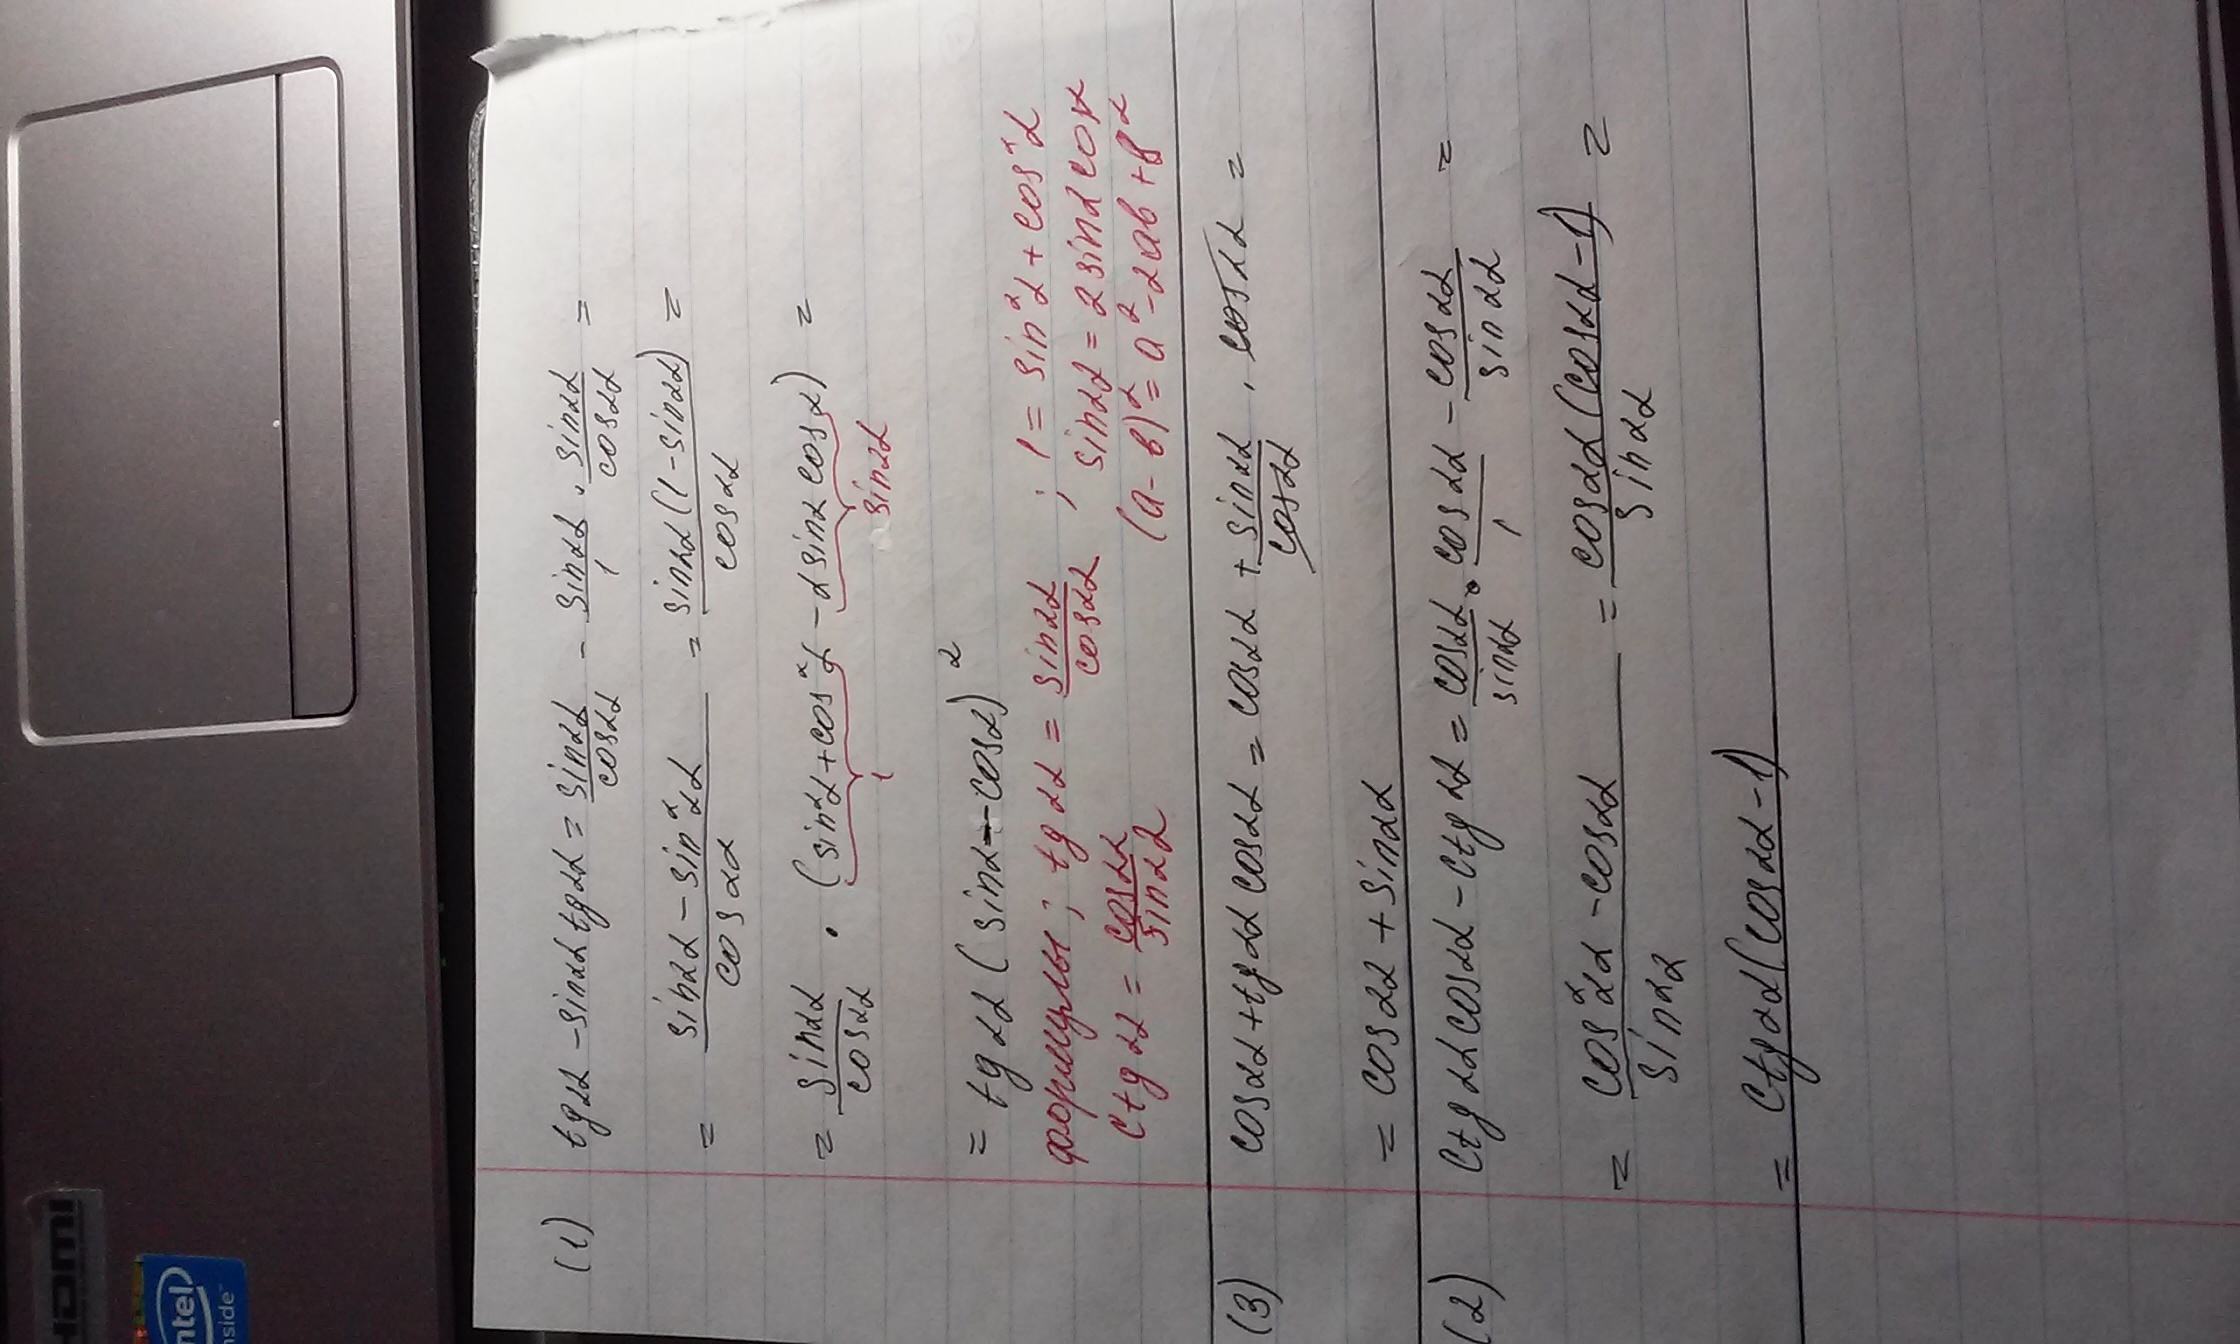 HDMI
intel
inside
(1) tg2α - sin2α tg2α = sin2α/cos2α - sin2α/1 · sin2α/cos2α =
= (sin2α - sin²2α)/cos2α = sin2α(1 - sin2α)/cos2α =
= sin2α/cos2α · (sin²α + cos²α - 2sinα cosα) =
1 sin2α
= tg2α (sinα - cosα)²
формулы; tg2α = sin2α/cos2α ; 1 = sin²α + cos²α
ctg2α = cos2α/sin22 sin2α = 2sinα cosα
(a-b)² = a² - 2ab + b²
(3) cos2α + tg2α cos2α = cos2α + sin2α/cos2α · cos2α =
= cos2α + sin2α
(2) ctg2α cos2α - ctg2α = cos2α/sin2α · cos2α/1 - cos2α/sin2α =
= (cos²2α - cos2α)/sin2α = cos2α(cos2α - 1)/sin2α =
= ctg2α(cos2α - 1)